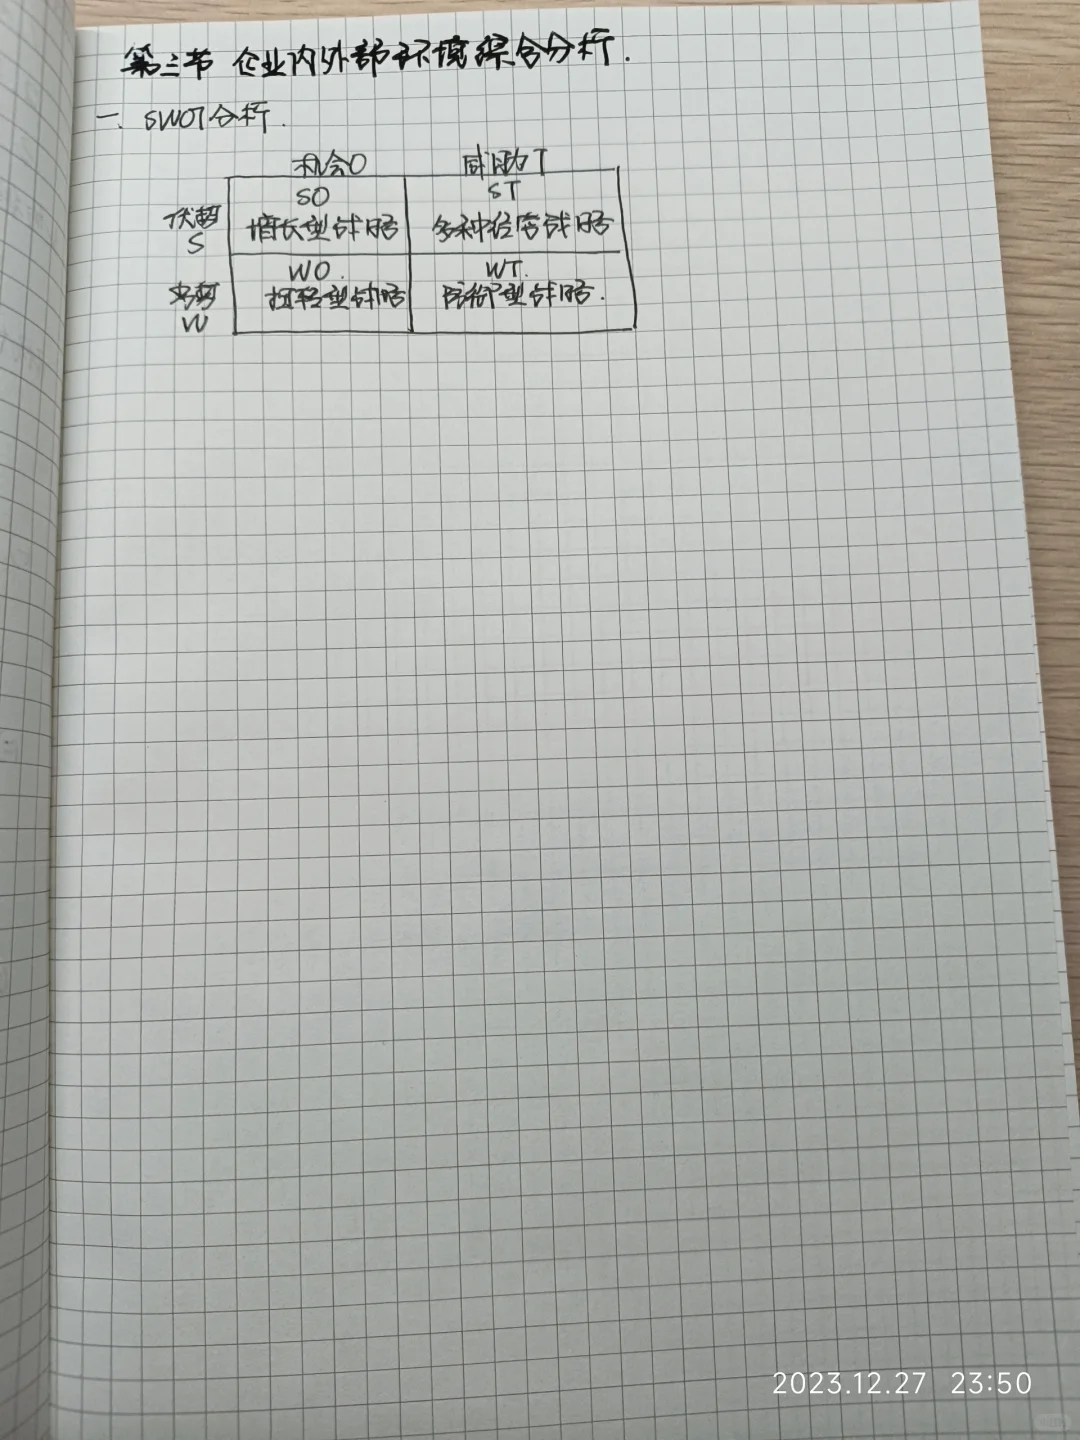 第三节 企业内外部环境综合分析.
一. SWOT分析.
机会O 威胁T
SO ST
优势 增长型战略 多种经营战略
S
WO. WT.
劣势 扭转型战略 防御型战略.
W
2023.12.27 23:50